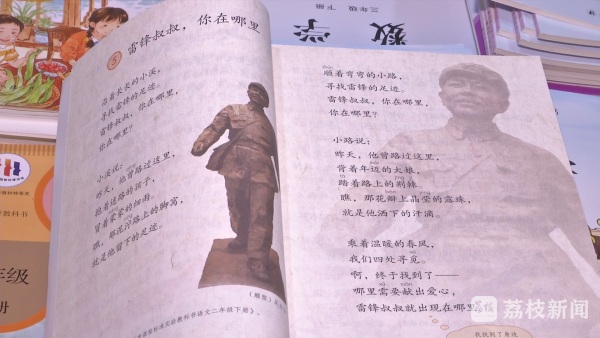 5 雷锋叔叔，你在哪里
沿着长长的小溪，
寻找雷锋的足迹。
雷锋叔叔，你在哪里，
你在哪里？
小溪说：
昨天，他曾路过这里，
抱着迷路的孩子，
冒着蒙蒙的细雨。
瞧，那泥泞路上的脚窝，
就是他留下的足迹。
顺着弯弯的小路，
寻找雷锋的足迹。
雷锋叔叔，你在哪里，
你在哪里？
小路说：
昨天，他曾路过这里，
背着年迈的大娘，
踏着路上的荆棘。
瞧，那花瓣上晶莹的露珠，
就是他洒下的汗滴。
乘着温暖的春风，
我们四处寻觅。
啊，终于找到了——
哪里需要献出爱心，
雷锋叔叔就出现在哪里
数学
三年级 下册
教科书
年级
册
荔枝新闻